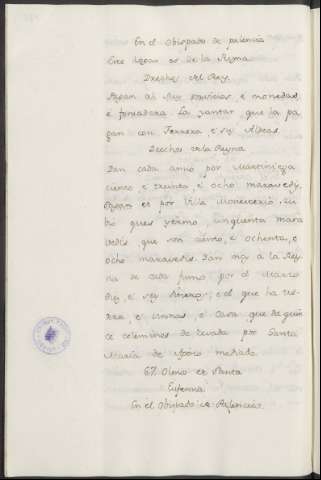 En el obispado de palencia
Este logar es de la Reyna
Drechos del Rey.
Pagan al Rey servicios, e monedas,
e fonsadera. La yantar que la pa
gan con Ferrera, e sus Aldeas
Derechos de la Reyna
Dan cada anno por Martiniega
ciento, e treinta, e ocho maravedis,
pagan por Villa
que es yermo, cinquenta mara
vedis que son ciento, e ochenta, e
ocho maravedis. Dan mas á la Rey
na de cada fumo por el Marzo
e el que ha tie
rra, e vinnas, e casa que dé quin
ce celemines de cevada por Santa
María de Agosto mediado
67. Olmo de Santa
Eufemia
En el Obispado de Palencia.